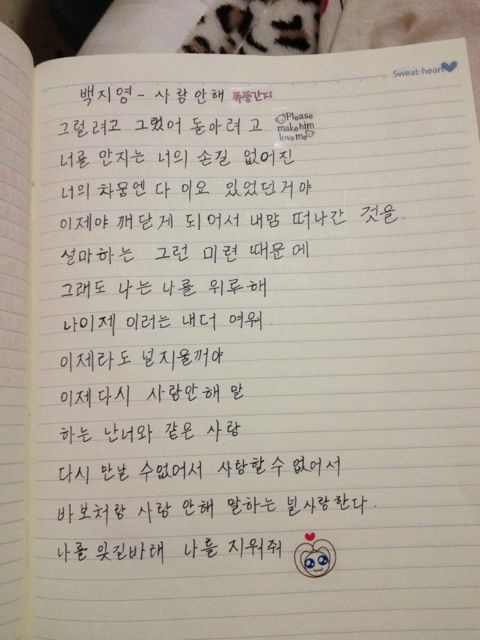 Sweat heart
백지영 - 사랑안해 폭풍간지
Please
make him
love me
그럴려고 그랬어 돌아려고
너를 안지는 너의 손길 없어진
너의 차몸엔 다 이오 있었던거야
이제야 깨닫게 되어서 내맘 떠나간 것을.
설마하는 그런 미련 때문에
그래도 나는 나를 위로해
나이제 이러는 내더 여워
이제라도 널지울꺼야
이제다시 사랑안해 말
하는 난너와 같은 사랑
다시 만날 수없어서 사랑할수 없어서
바보처럼 사랑 안해 말하는 널사랑한다.
나를 잊길바래 나를 지워줘